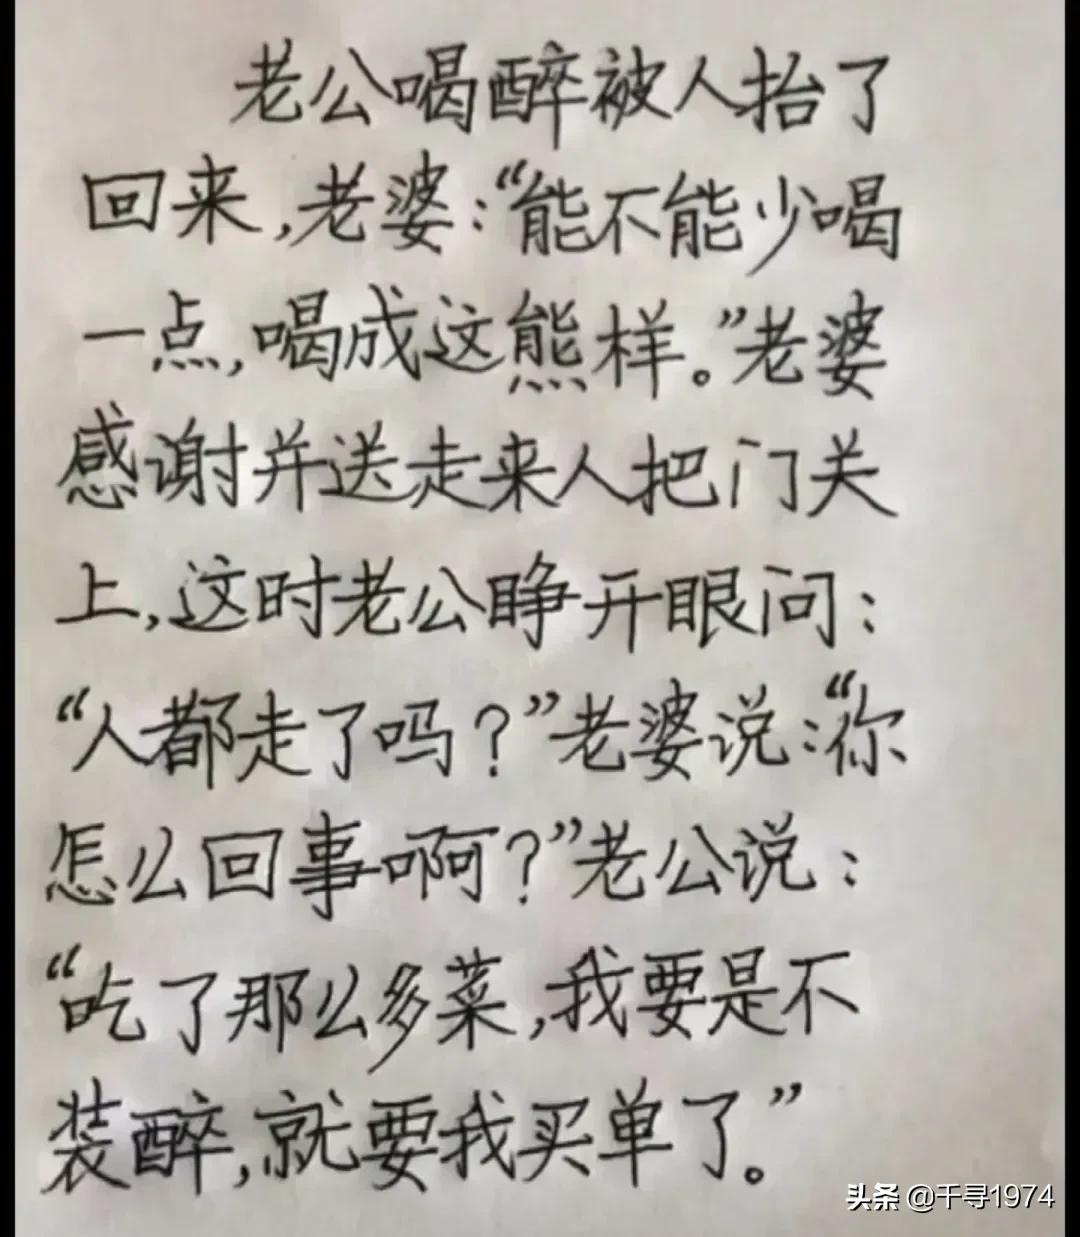 老公喝醉被人抬了
回来,老婆:“能不能少喝
一点,喝成这熊样。”老婆
感谢并送走来人把门关
上,这时老公睁开眼问:
“人都走了吗?”老婆说:“你
怎么回事啊?”老公说:
“吃了那么多菜,我要是不
装醉,就要我买单了。”
头条 @千寻1974